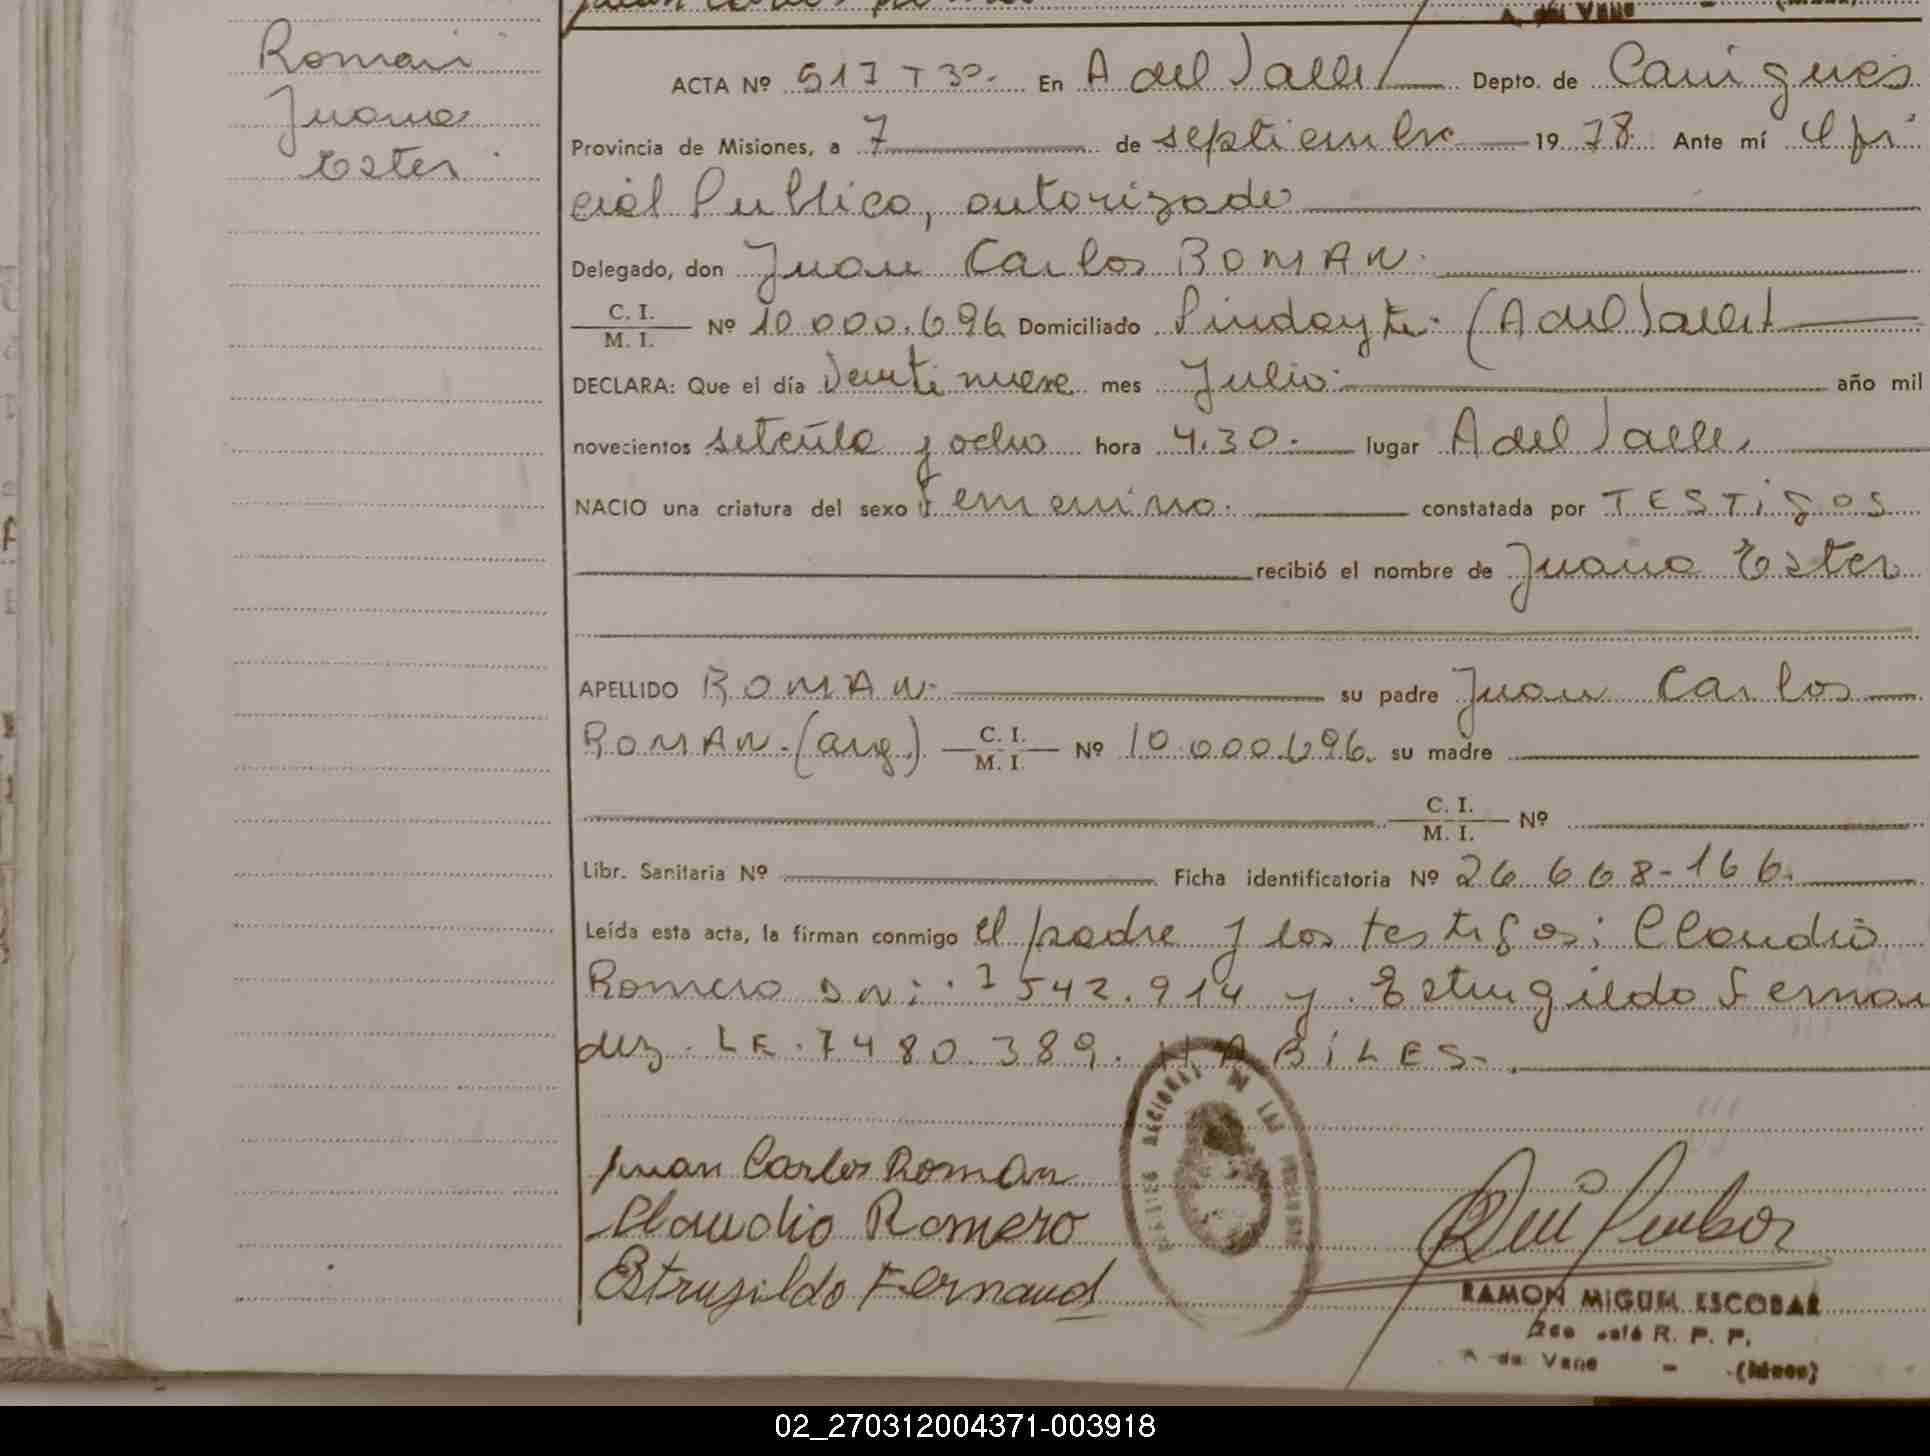 Roman
Juana
Ester
ACTA Nº 517 T 3º. En A del Valle Depto. de Caingues
Provincia de Misiones, a 7 de septiembre 1978. Ante mí Ofi
cial Publico, autorizado
Delegado, don Juan Carlos ROMAN.
C. I.
M. I. Nº 10.000.696 Domiciliado Pindayti. (A del Valle)
DECLARA: Que el día Veinti nueve mes Julio. año mil
novecientos setenta y ocho hora 4.30. lugar A del Valle,
NACIO una criatura del sexo Femenino. constatada por TESTigos
recibió el nombre de Juana Ester
APELLIDO ROMAN. su padre Juan Carlos
ROMAN.(arg.) C. I. M. I. Nº 10.000.696. su madre
C. I.
M. I. Nº
Libr. Sanitaria Nº Ficha identificatoria Nº 26.668-166.
Leída esta acta, la firman conmigo el padre y los testigos: Claudio
Romero DNi: 7542.914 y Estrugildo Fernan
dez. LE. 7480.389. HABiLES.
Juan Carlos Roman
Claudio Romero
Estrugildo Fernand
REGIONAL DE LAS
RAMON MIGUEL ESCOBAR
R. P. P.
A del Valle - (Mnes)
02_270312004371-003918